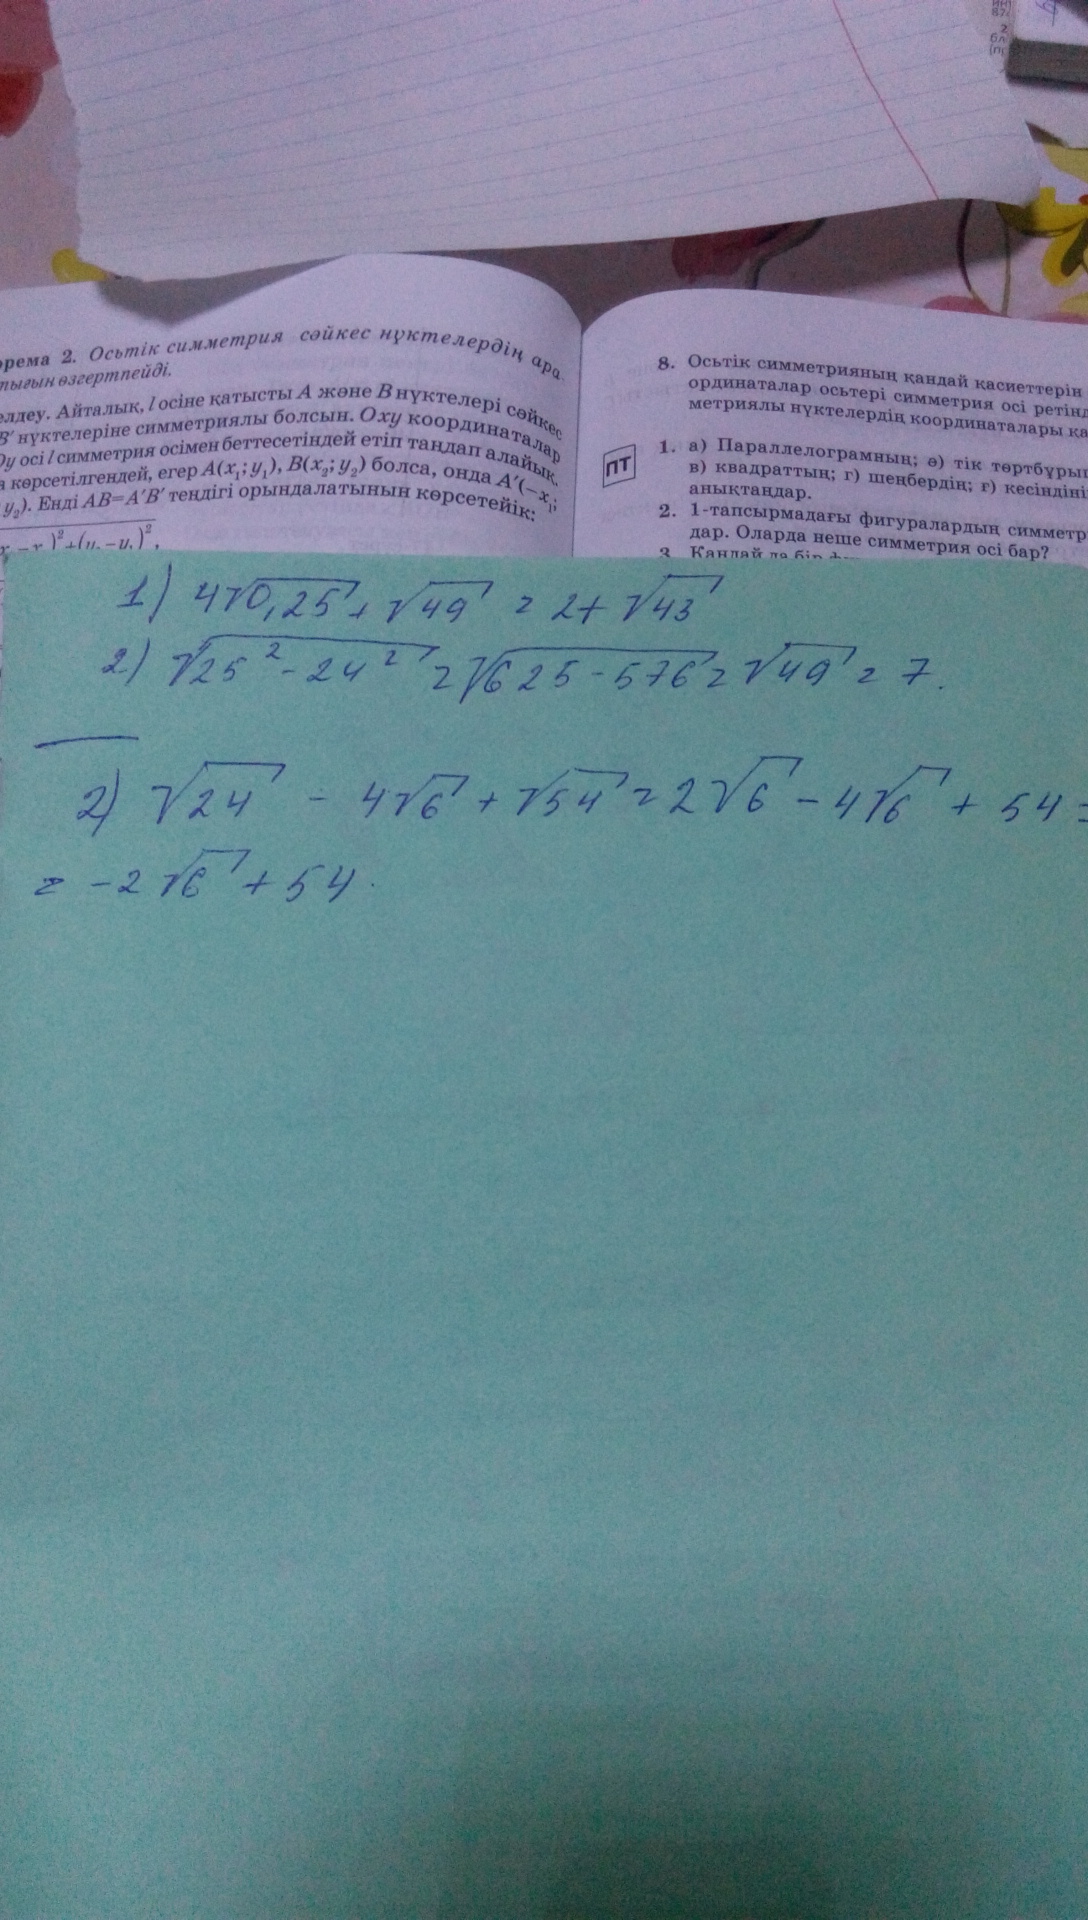 2. Осьтік симметрия сәйкес нүктелердің ара
өзгертпейді.
Айталық, l осіне қатысты A және B нүктелері сәйкес
B′ нүктелеріне симметриялы болсын. Oxy координаталар
Oy осі l симметрия осімен беттесетіндей етіп таңдап алайық.
көрсетілгендей, егер A(x₁; y₁), B(x₂; y₂) болса, онда A′(−x₁;
y₂). Енді AB=A′B′ теңдігі орындалатынын көрсетейік:
8. Осьтік симметрияның қандай қасиеттерін
ординаталар осьтері симметрия осі ретінд
метриялы нүктелердің координаталары қа
ПТ
1. а) Параллелограмның; ә) тік төртбұрыш
в) квадраттың; г) шеңбердің; ғ) кесіндіні
анықтаңдар.
2. 1-тапсырмадағы фигуралардың симметр
дар. Оларда неше симметрия осі бар?
1) 4√0,25 + √49 = 2+ √43
2) √25² - 24² = √625 - 576 = √49 = 7.
2) √24 - 4√6 + √54 = 2√6 - 4√6 + 54 =
= -2√6 + 54.